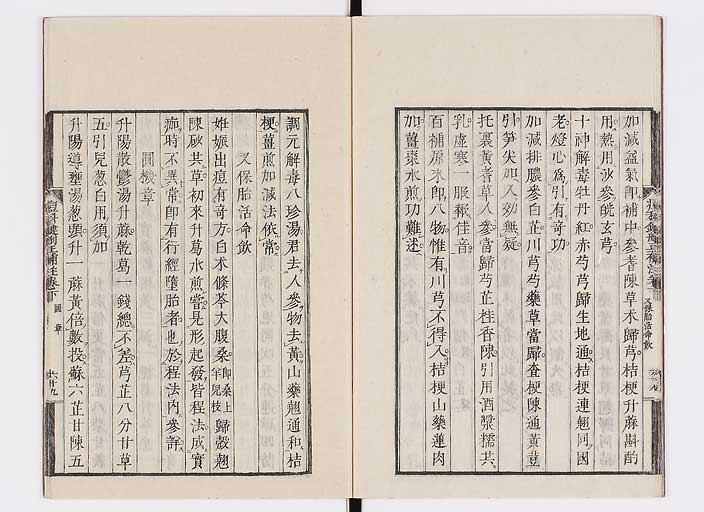 加減益氣即補中參耆陳草术歸芎桔梗升蔴斟酌
用熱用沙參皝玄芎
十神解毒牡丹紅赤芍芎歸生地通桔梗連翹同國
老燈心為引有奇功
加減排膿參白芷川芎芍藥草當歸查梗陳通黃荳
引笋尖加入効無疑
托裏黃耆草人參當歸芎芷桂香陳引用酒漿糯共
乳虛寒一服報佳音
百補原來即八物惟有川芎不得入桔梗山藥蓮肉
加薑棗水煎功難述
調元解毒八珍湯君去人參物去黃山藥翹通和桔
梗薑煎加減法依常
又保胎活命飲
姙娠出痘有奇方白术條芩大腹桑即桑上羊兒枝歸殼翹
陳砂共草初來升葛水煎嘗是形起發皆程法成實
痂時不異常即有行經墮胎者也於程法內參詳
圓機章
升陽散鬱湯升蔴乾葛一錢總不差芎芷八分甘草
五引兒葱白用須加
升陽導壅湯葱頭升一蔴黃倍數投蘇六芷甘陳五